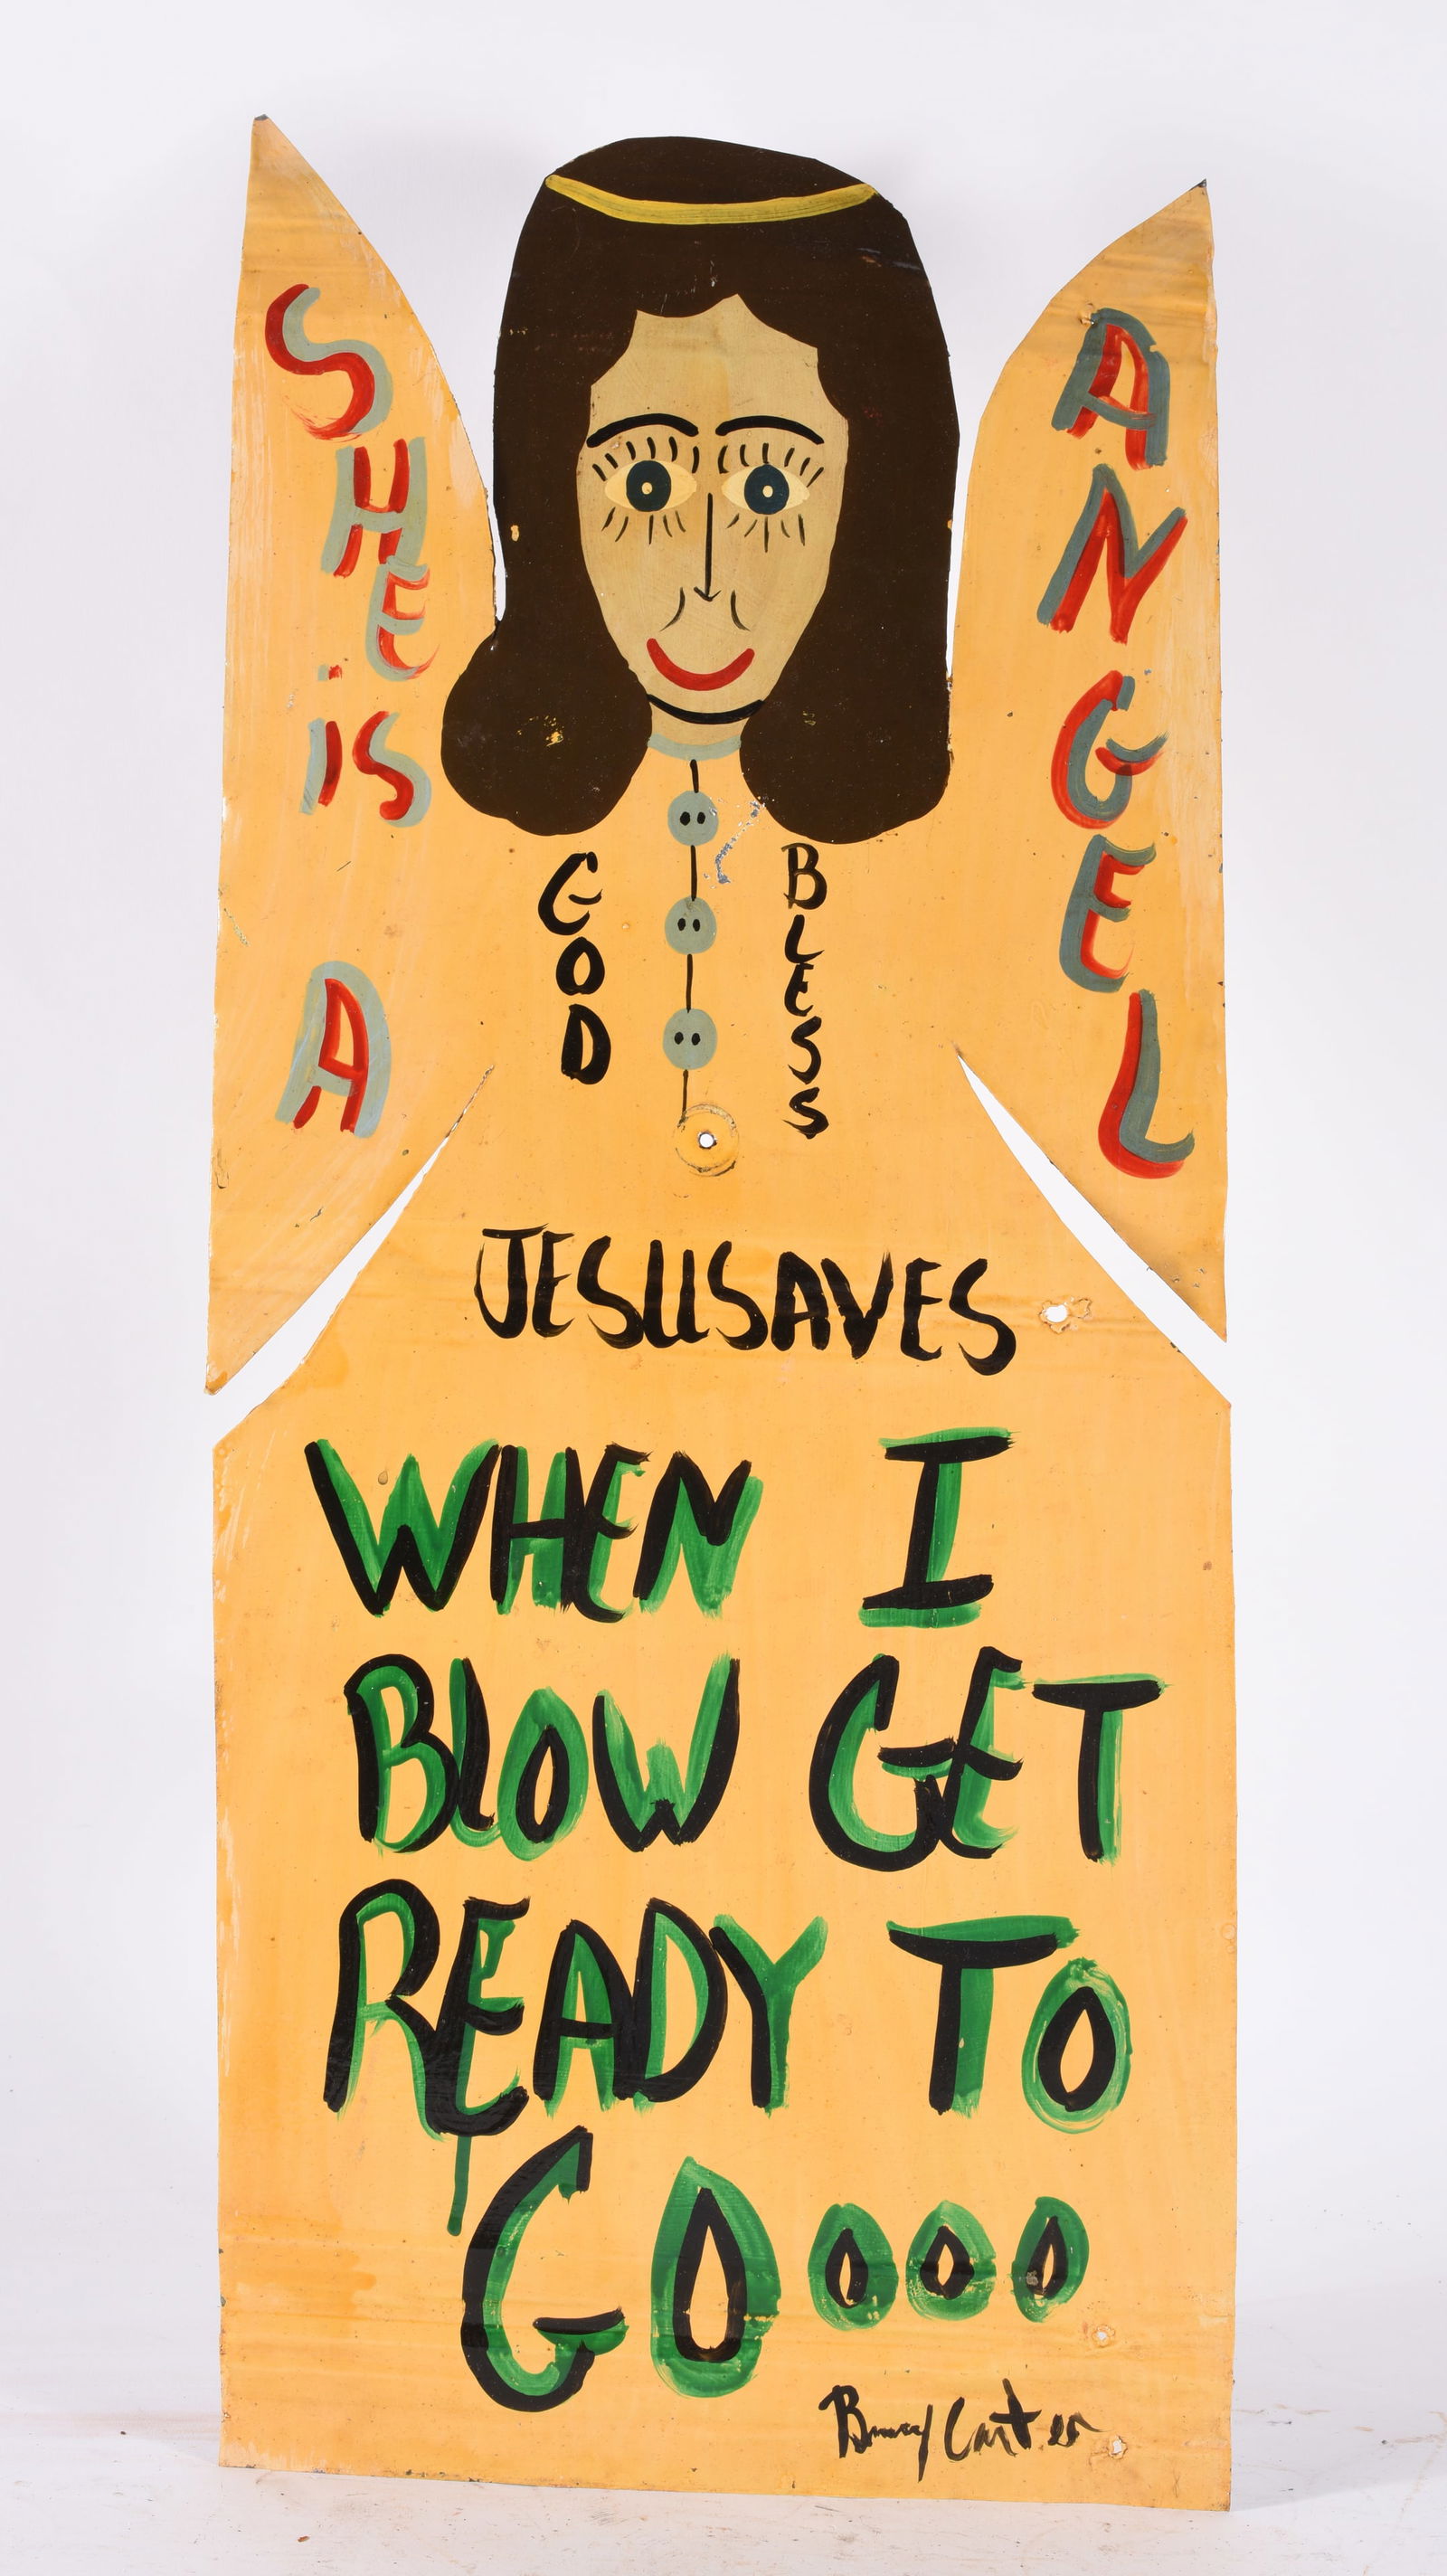 SHE
iS
A
ANGEL
GOD
BLESS
JESUSAVES
WHEN I
BLOW GET
READY TO
GOOOO
Benny Carter